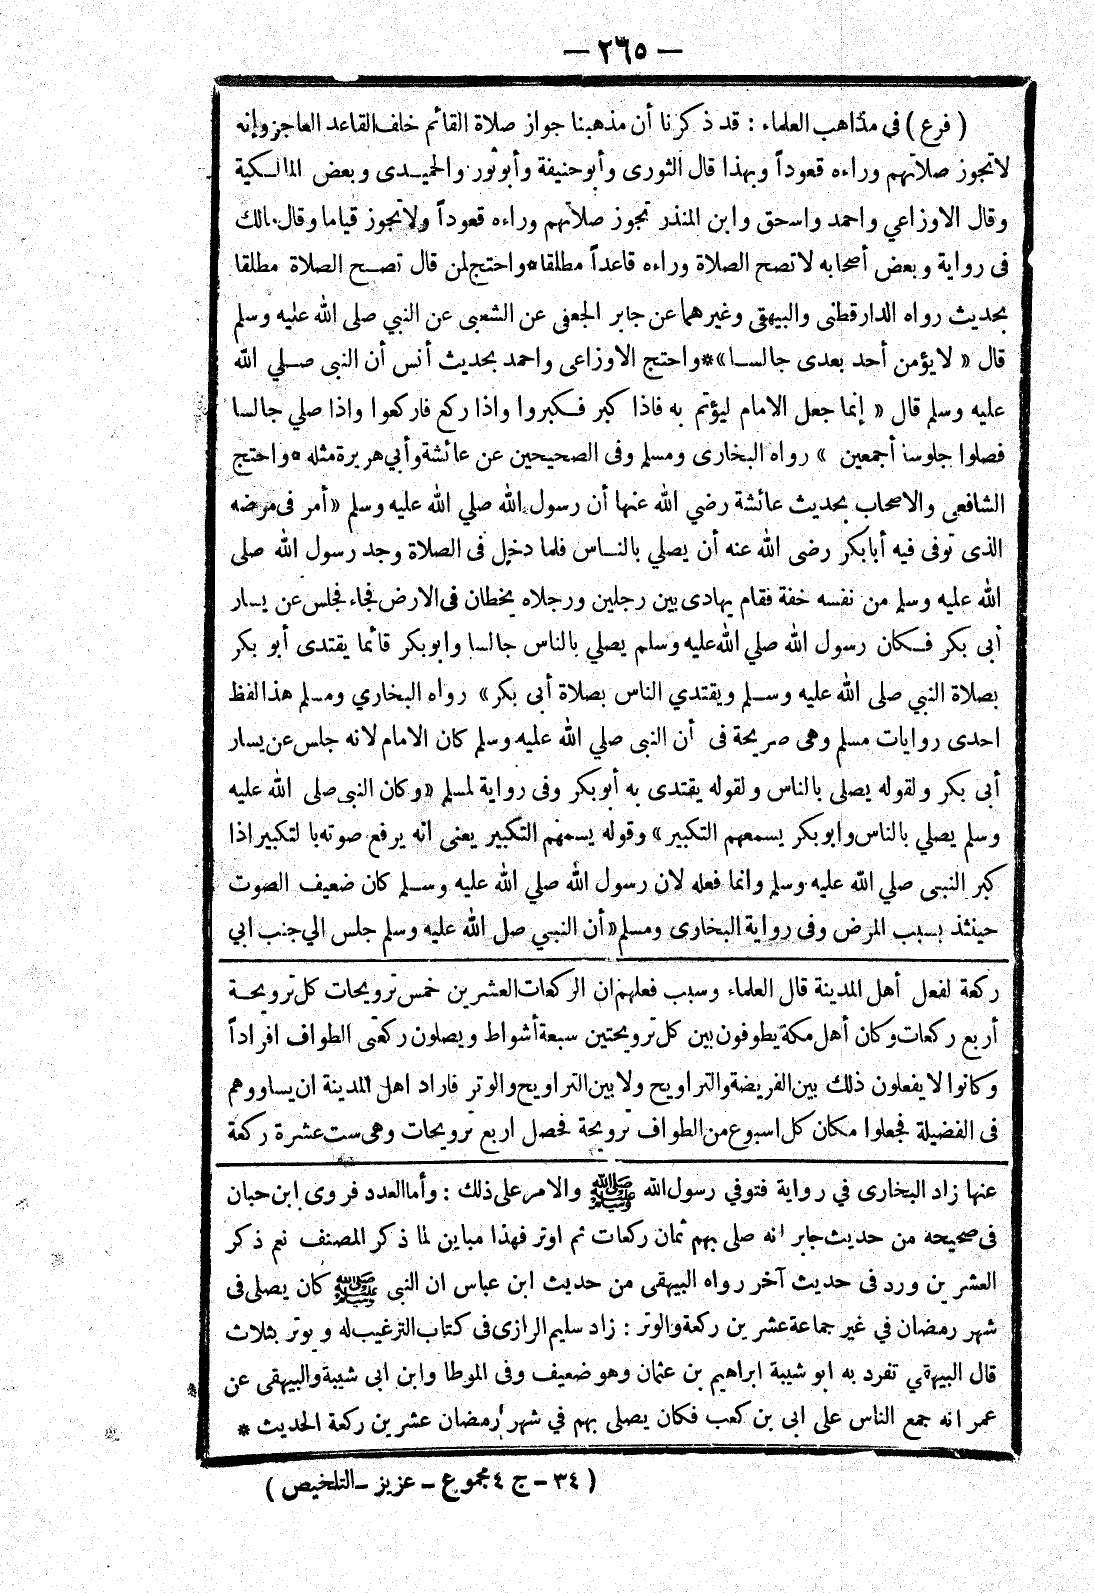 — ٢٦٥ —
( فرع ) في مذاهب العلماء : قد ذكرنا أن مذهبنا جواز صلاة القائم خلف القاعد العاجز وإنه
لا تجوز صلاتهم وراءه قعوداً وبهذا قال الثورى وأبو حنيفة وأبو ثور والحميدى وبعض المالكية
وقال الاوزاعي واحمد واسحق وابن المنذر تجوز صلاتهم وراءه قعوداً ولا تجوز قياما وقال مالك
فى رواية وبعض أصحابه لا تصح الصلاة وراءه قاعداً مطلقا * واحتج لمن قال تصح الصلاة مطلقا
بحديث رواه الدارقطنى والبيهقى وغيرهما عن جابر الجعفى عن الشعبى عن النبي صلى الله عليه وسلم
قال « لا يؤمن أحد بعدى جالسا » * واحتج الاوزاعى واحمد بحديث أنس أن النبى صلي الله
عليه وسلم قال « إنما جعل الامام ليؤتم به فاذا كبر فكبروا واذا ركع فاركعوا واذا صلي جالسا
فصلوا جلوسا أجمعين » رواه البخارى ومسلم وفى الصحيحين عن عائشة وأبي هريرة مثله * واحتج
الشافعى والاصحاب بحديث عائشة رضي الله عنها أن رسول الله صلي الله عليه وسلم « أمر فى مرضه
الذى توفى فيه أبا بكر رضى الله عنه أن يصلي بالناس فلما دخل فى الصلاة وجد رسول الله صلى
الله عليه وسلم من نفسه خفة فقام يهادى بين رجلين ورجلاه يخطان فى الارض فجاء فجلس عن يسار
أبى بكر فكان رسول الله صلي الله عليه وسلم يصلي بالناس جالسا وابو بكر قائما يقتدى أبو بكر
بصلاة النبي صلى الله عليه وسلم ويقتدي الناس بصلاة أبى بكر » رواه البخاري ومسلم هذا لفظ
احدى روايات مسلم وهى صريحة فى أن النبى صلي الله عليه وسلم كان الامام لانه جلس عن يسار
أبى بكر ولقوله يصلى بالناس ولقوله يقتدى به أبو بكر وفى رواية لمسلم « وكان النبى صلى الله عليه
وسلم يصلي بالناس وابو بكر يسمعهم التكبير » وقوله يسمعهم التكبير يعنى انه يرفع صوته بالتكبير اذا
كبر النبى صلي الله عليه وسلم وانما فعله لان رسول الله صلي الله عليه وسلم كان ضعيف الصوت
حينئذ بسبب المرض وفى رواية البخارى ومسلم « أن النبي صل الله عليه وسلم جلس الي جنب ابي
ركعة لفعل أهل المدينة قال العلماء وسبب فعلهم ان الركعات العشرين خمس ترويحات كل ترويحة
أربع ركعات وكان أهل مكة يطوفون بين كل ترويحتين سبعة أشواط ويصلون ركعتى الطواف افراداً
وكانوا لا يفعلون ذلك بين الفريضة والتراويح ولا بين التراويح والوتر فاراد اهل المدينة ان يساووهم
فى الفضيلة فجعلوا مكان كل اسبوع من الطواف ترويحة فحصل اربع ترويحات وهى ست عشرة ركعة
عنها زاد البخارى في رواية فتوفي رسول الله ﷺ والامر على ذلك : وأما العدد فروى ابن حبان
فى صحيحه من حديث جابر انه صلى بهم ثمان ركعات ثم اوتر فهذا مباين لما ذكر المصنف نعم ذكر
العشرين ورد فى حديث آخر رواه البيهقى من حديث ابن عباس ان النبى ﷺ كان يصلى فى
شهر رمضان في غير جماعة عشرين ركعة والوتر : زاد سليم الرازى فى كتاب الترغيب له ويوتر بثلاث
قال البيهقي تفرد به ابو شيبة ابراهيم بن عثمان وهو ضعيف وفى الموطا وابن ابى شيبة والبيهقى عن
عمر انه جمع الناس على ابى بن كعب فكان يصلى بهم في شهر رمضان عشرين ركعة الحديث *
( ٣٤ – ج ٤ مجموع – عزيز – التلخيص )